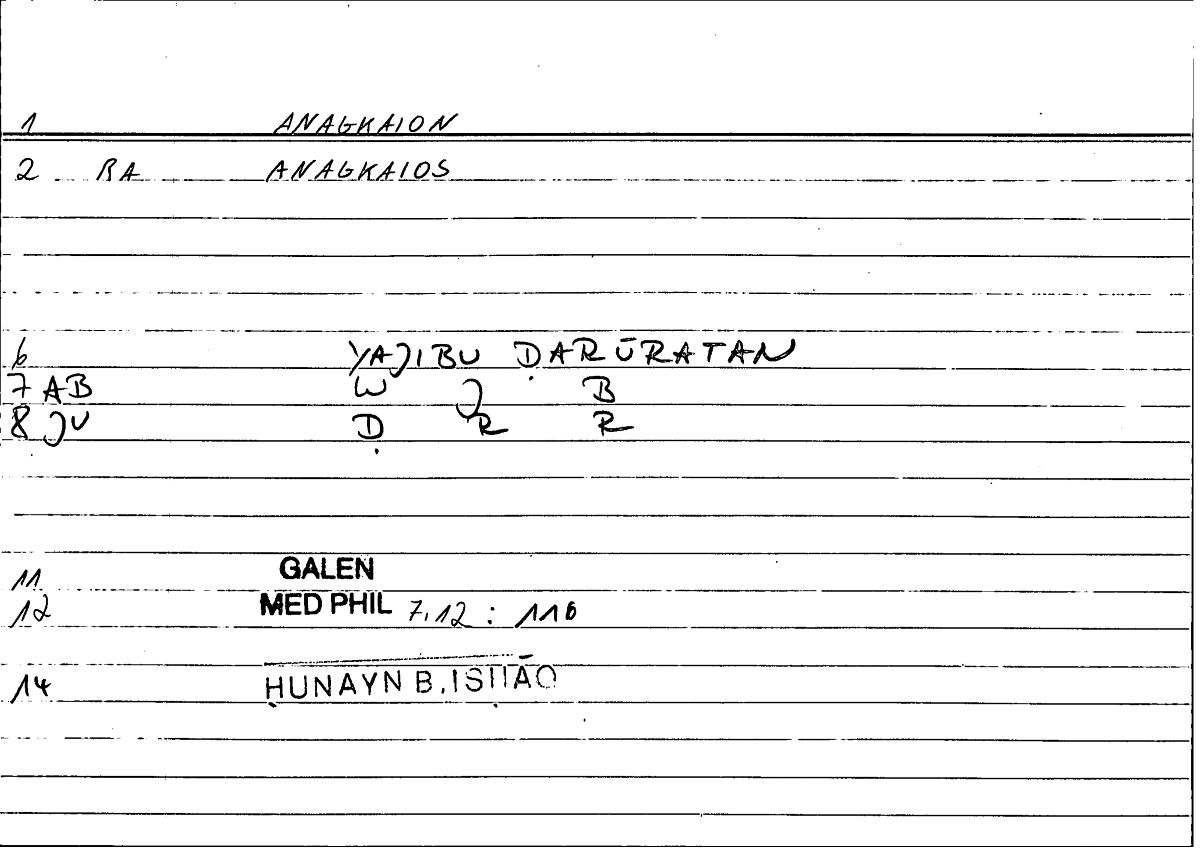 1 ANAGKAION
2 RA ANAGKAIOS
6 YAJIBU ḌARŪRATAN
7 AB W J B
8 JU Ḍ R R
11 GALEN
12 MED PHIL 7.12 : 116
14 ḤUNAYN B. ISḤĀQ